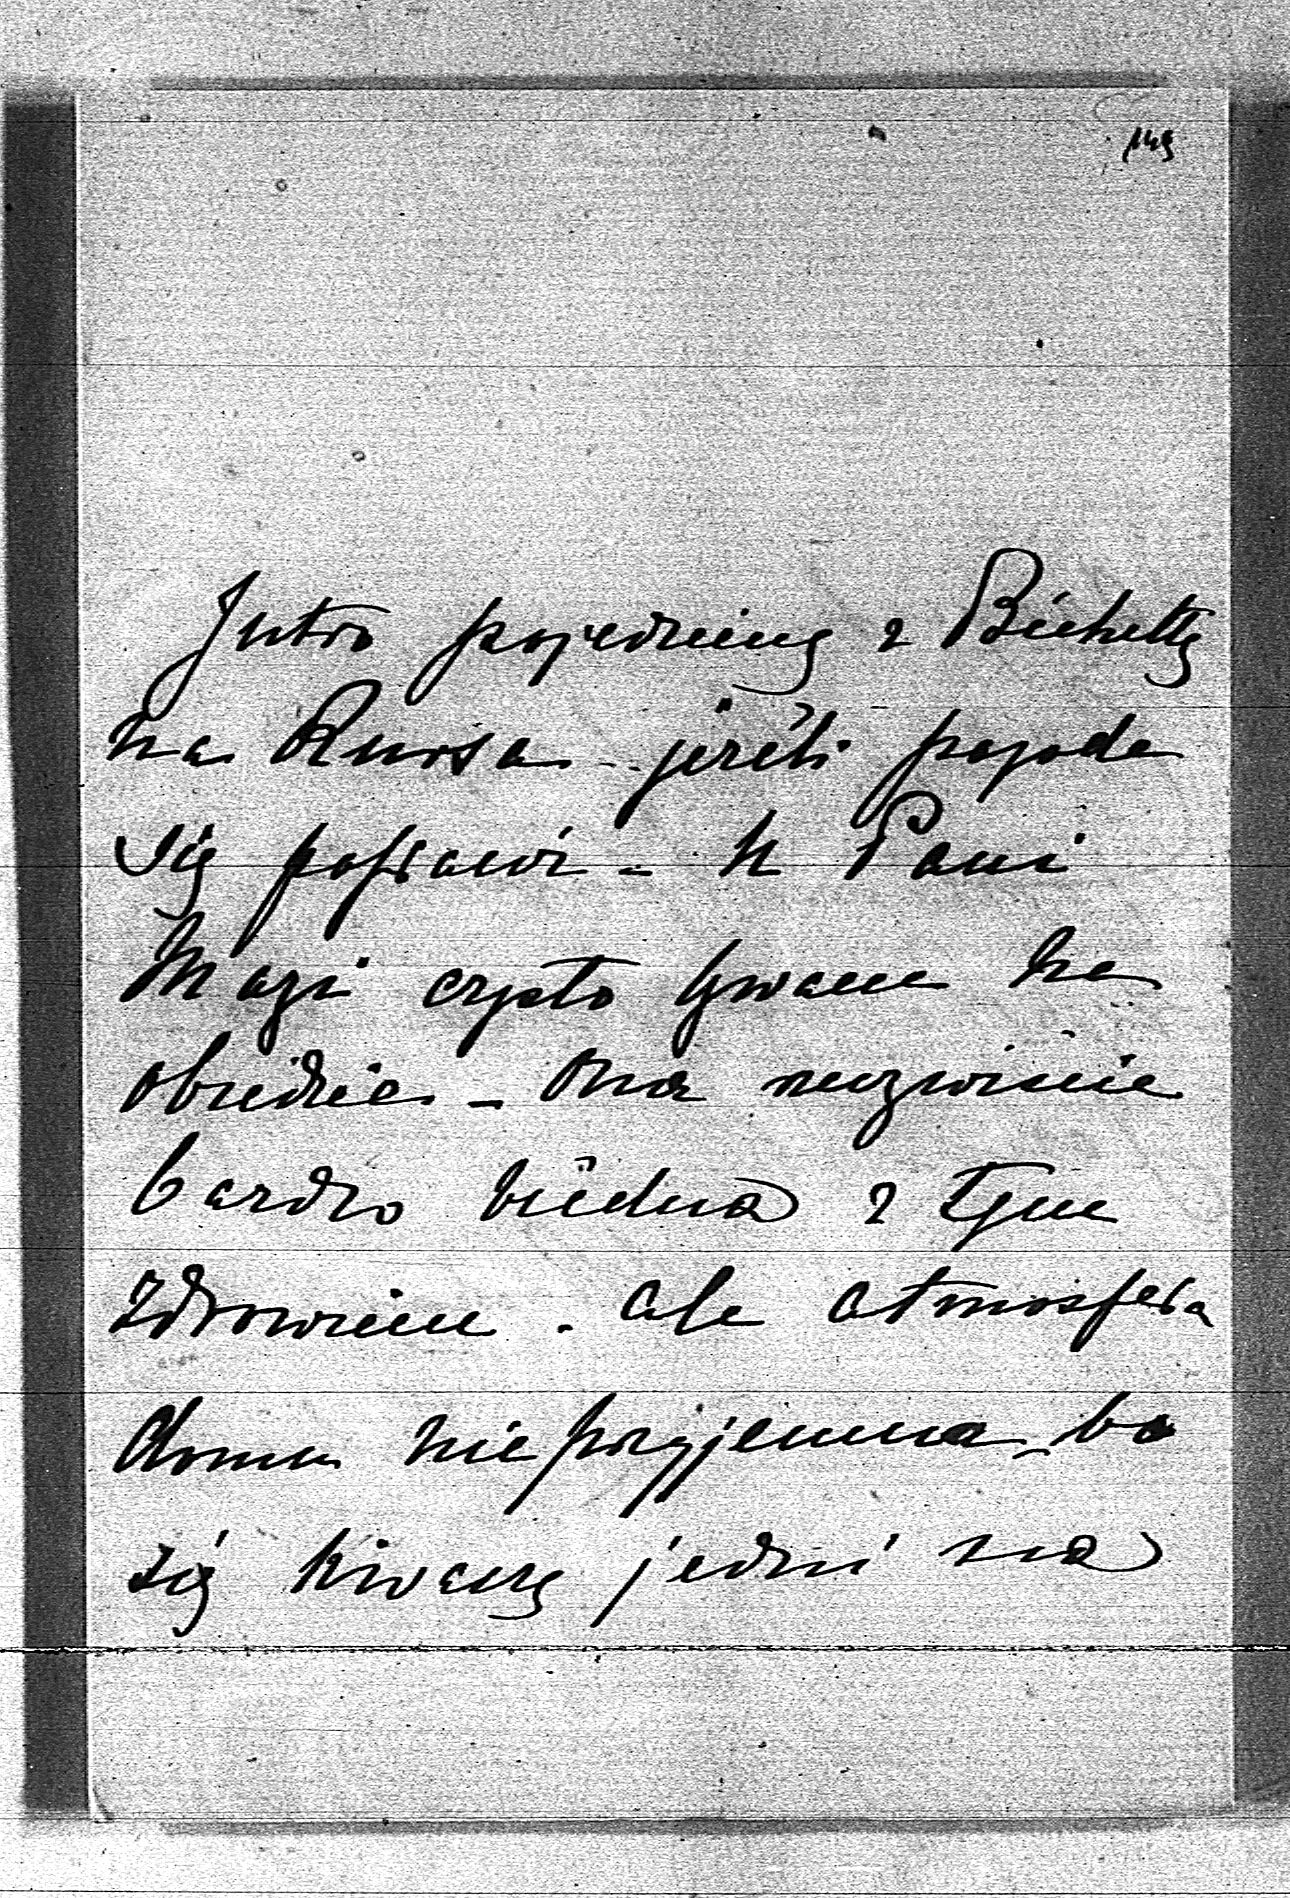 149
Jutro pojedziemy z Bichettą
na Kursa jeżeli pogoda
się poprawi - u Pani
Mazi często bywam na
obiedzie - Ona rzeczywiście
bardzo biedna z tym
zdrowiem - ale atmosfera
domu nieprzyjemna, bo
się kiwają jedni na